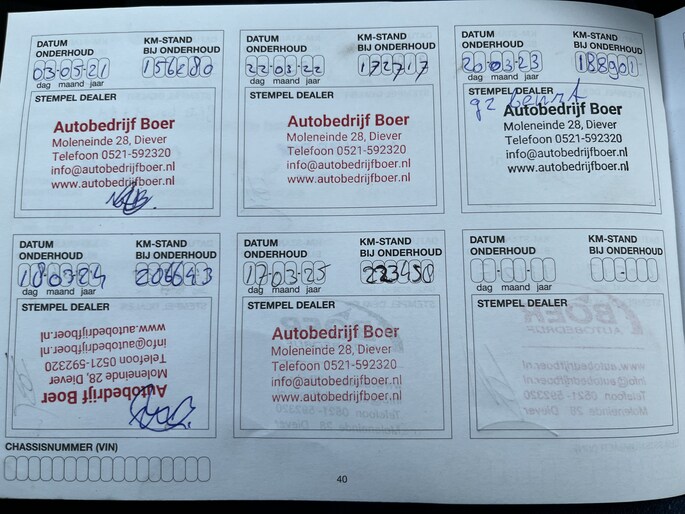 DATUM ONDERHOUD
KM-STAND BIJ ONDERHOUD
03-05-21
156280
dag maand jaar
STEMPEL DEALER
Autobedrijf Boer
Moleneinde 28, Diever
Telefoon 0521-592320
info@autobedrijfboer.nl
www.autobedrijfboer.nl
DATUM ONDERHOUD
KM-STAND BIJ ONDERHOUD
22-03-22
172717
dag maand jaar
STEMPEL DEALER
Autobedrijf Boer
Moleneinde 28, Diever
Telefoon 0521-592320
info@autobedrijfboer.nl
www.autobedrijfboer.nl
DATUM ONDERHOUD
KM-STAND BIJ ONDERHOUD
20-03-23
188901
dag maand jaar
STEMPEL DEALER
gz beurt
Autobedrijf Boer
Moleneinde 28, Diever
Telefoon 0521-592320
info@autobedrijfboer.nl
www.autobedrijfboer.nl
DATUM ONDERHOUD
KM-STAND BIJ ONDERHOUD
18-03-24
206643
dag maand jaar
STEMPEL DEALER
Autobedrijf Boer
Moleneinde 28, Diever
Telefoon 0521-592320
info@autobedrijfboer.nl
www.autobedrijfboer.nl
DATUM ONDERHOUD
KM-STAND BIJ ONDERHOUD
17-03-25
223450
dag maand jaar
STEMPEL DEALER
Autobedrijf Boer
Moleneinde 28, Diever
Telefoon 0521-592320
info@autobedrijfboer.nl
www.autobedrijfboer.nl
DATUM ONDERHOUD
KM-STAND BIJ ONDERHOUD
dag maand jaar
STEMPEL DEALER
BOER
AUTOBEDRIJF
www.autobedrijfboer.nl
info@autobedrijfboer.nl
Telefoon 0521-592320
Moleneinde 28 Diever
CHASSISNUMMER (VIN)
40